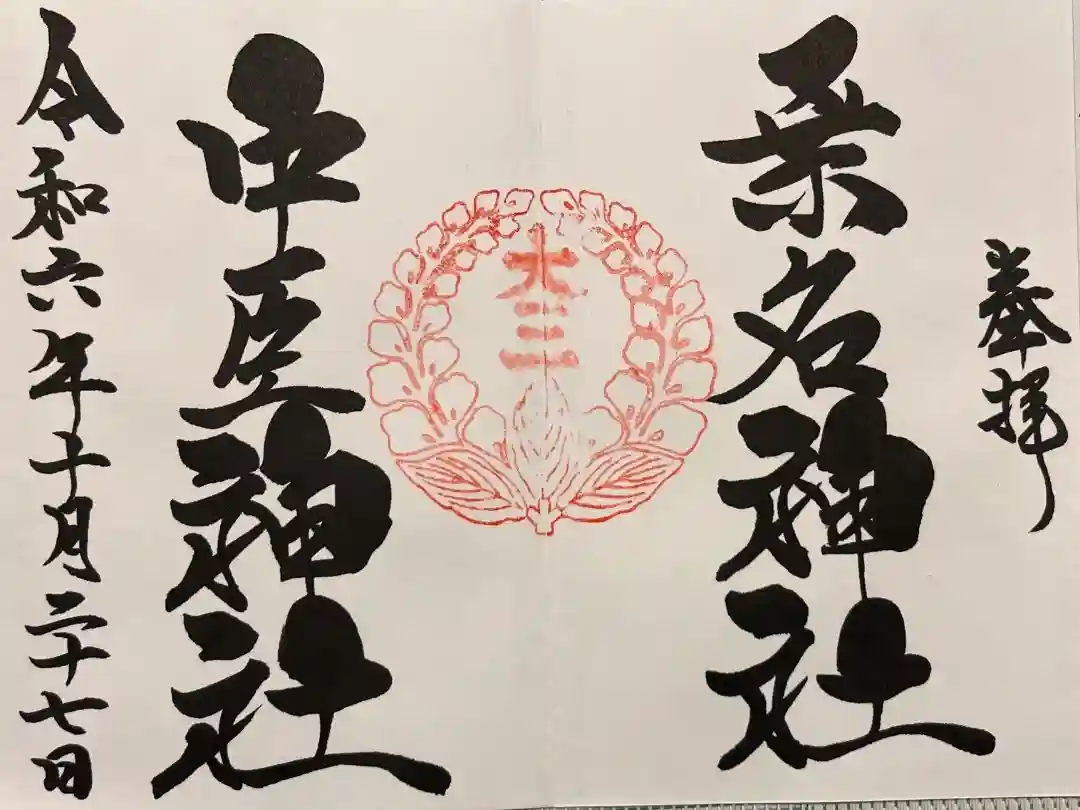 奉拝
桑名神社
大
三
一
中臣神社
令和六年十月二十七日